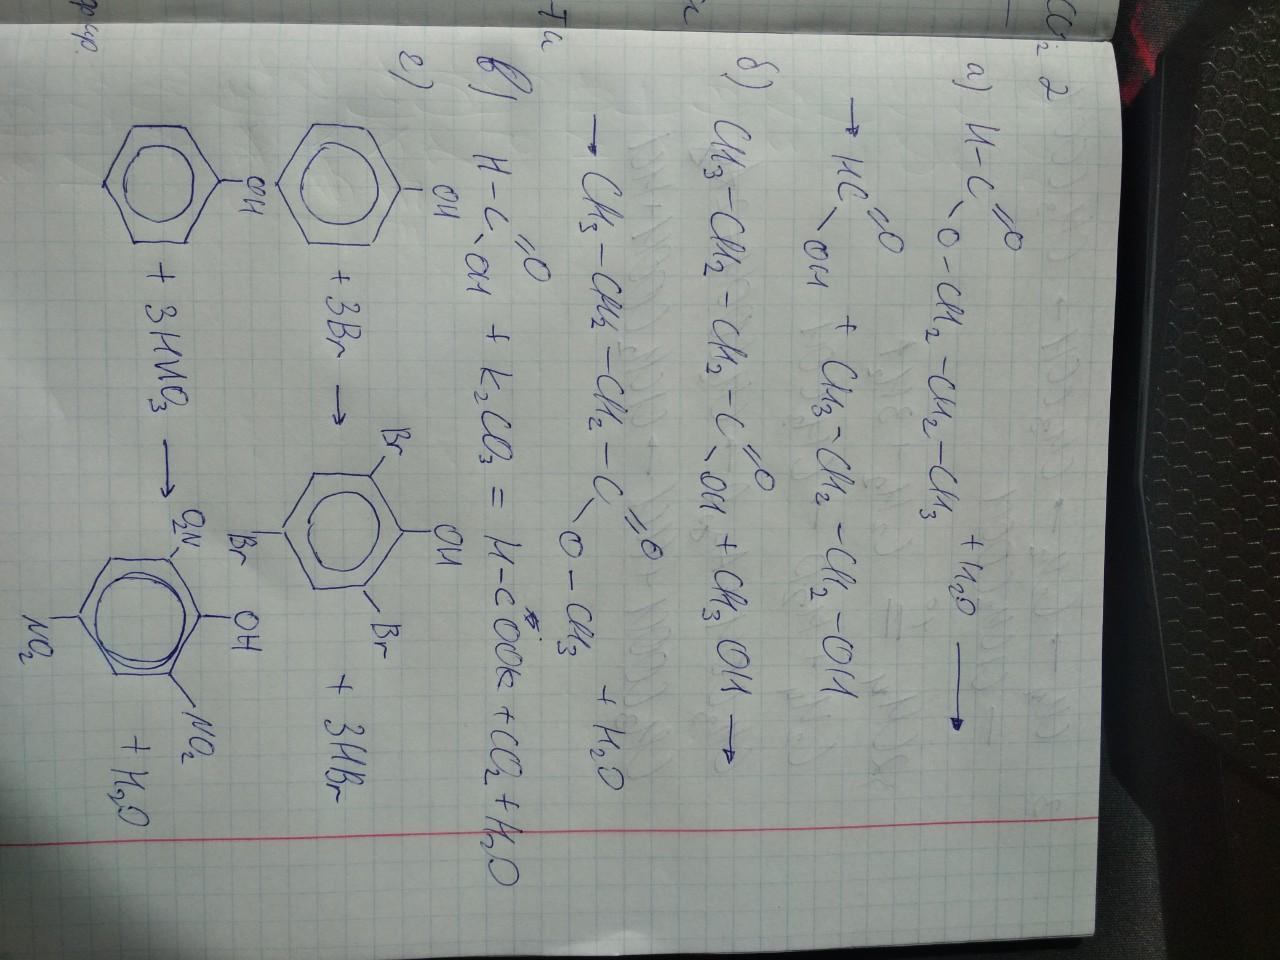 2
а) H-C=O O-CH2-CH2-CH3 + H2O →
→ HC=O OH + CH3-CH2-CH2-OH
б) CH3-CH2-CH2-C=O OH + CH3OH →
→ CH3-CH2-CH2-C=O O-CH3 + H2O
в) H-C=O OH + K2CO3 = H-COOK + CO2 + H2O
г) OH + 3Br → Br OH Br Br + 3HBr
OH + 3HNO3 → O2N OH NO2 NO2 + H2O